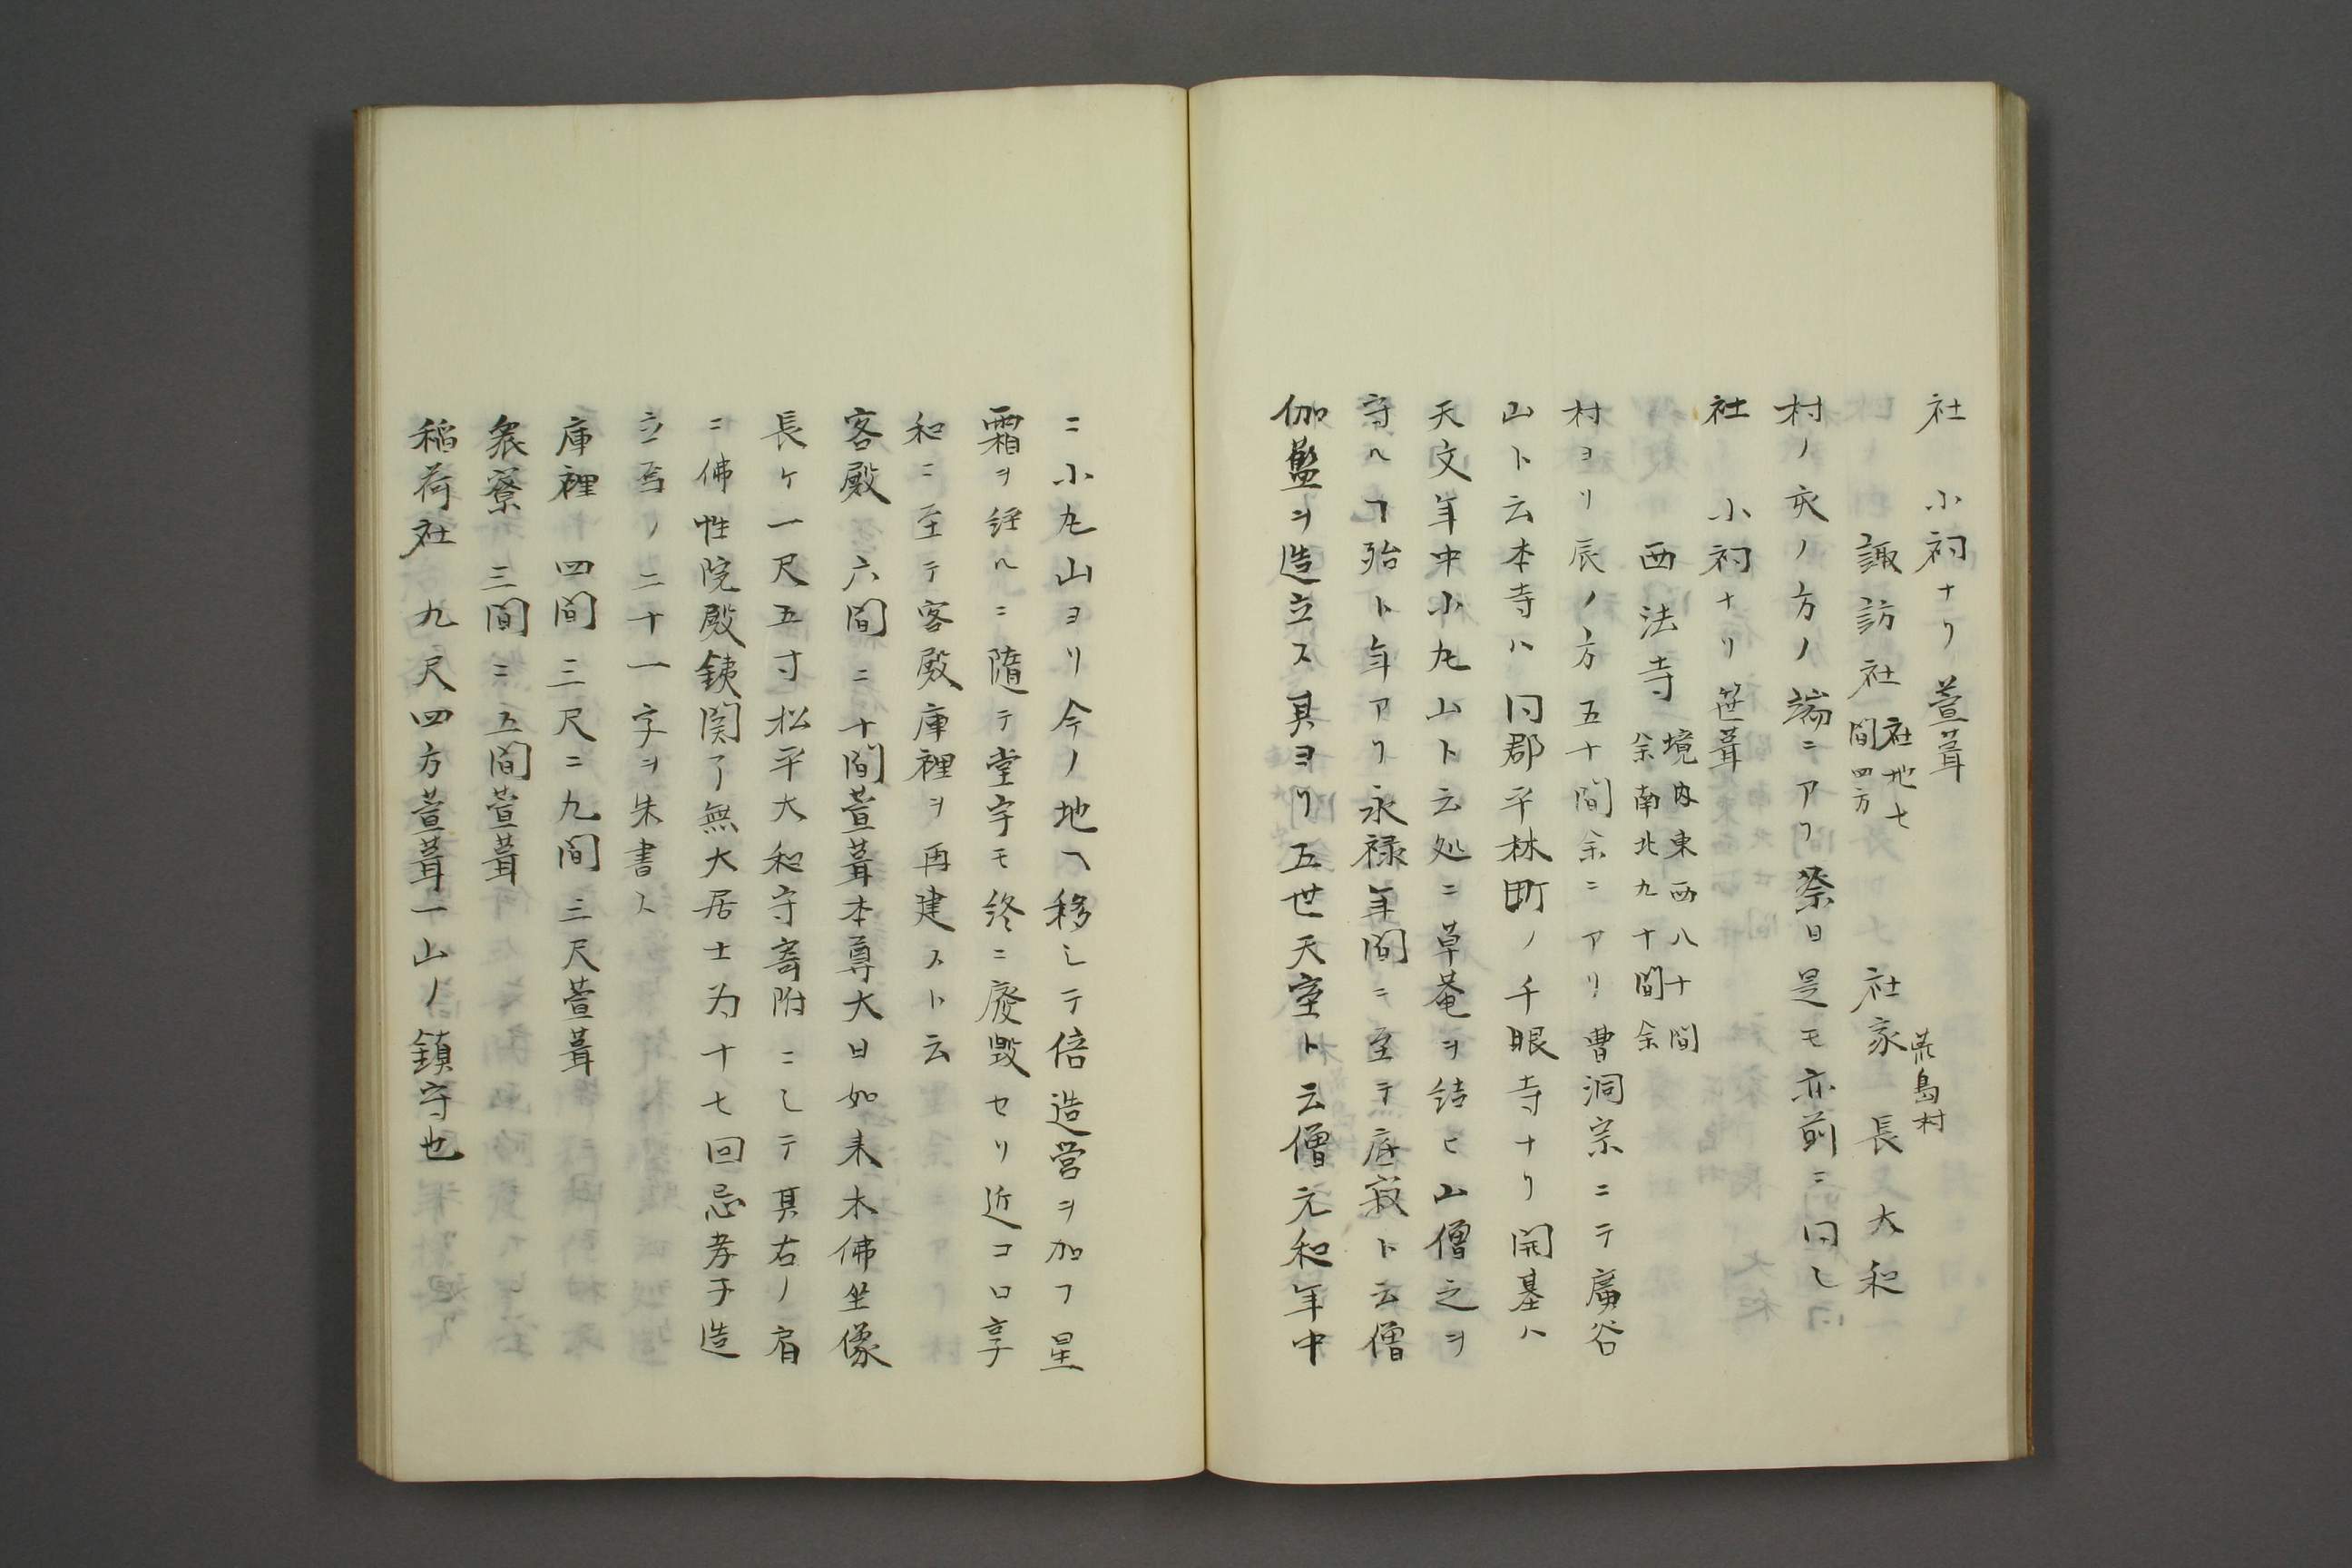 社 小祠ナリ萱葺
諏訪社 社地七間四方 社家 荒島村 長大和
村ノ亥ノ方ノ端ニアリ祭日是モ亦前ニ同シ
社 小祠ナリ笹葺
西法寺 境内東西八十間余南北九十間余
村ヨリ辰ノ方五十間余ニアリ曹洞宗ニテ廣谷
山ト云本寺ハ同郡平林町ノ千眼寺ナリ開基ハ
天文年中小丸山ト云処ニ草菴ヲ結ヒ山僧之ヲ
守ルヿ殆ト年アリ永禄年間ニ至テ底寂ト云僧
伽藍ヲ造立ス其ヨリ五世天室ト云僧元和年中
ニ小丸山ヨリ今ノ地ヘ移シテ倍造営ヲ加フ星
霜ヲ経ルニ随テ堂宇モ終ニ廢毀セリ近コロ享
和ニ至テ客殿庫裡ヲ再建スト云
客殿 六間ニ十間萱葺本尊大日如来木佛坐像
長ケ一尺五寸松平大和守寄附ニシテ其右ノ肩
ニ佛性院殿鉄関了無大居士為十七回忌孝子造
立焉ノ二十一字ヲ朱書ス
庫裡 四間三尺ニ九間三尺萱葺
衆寮 三間ニ五間萱葺
稲荷社 九尺四方萱葺一山ノ鎮守也